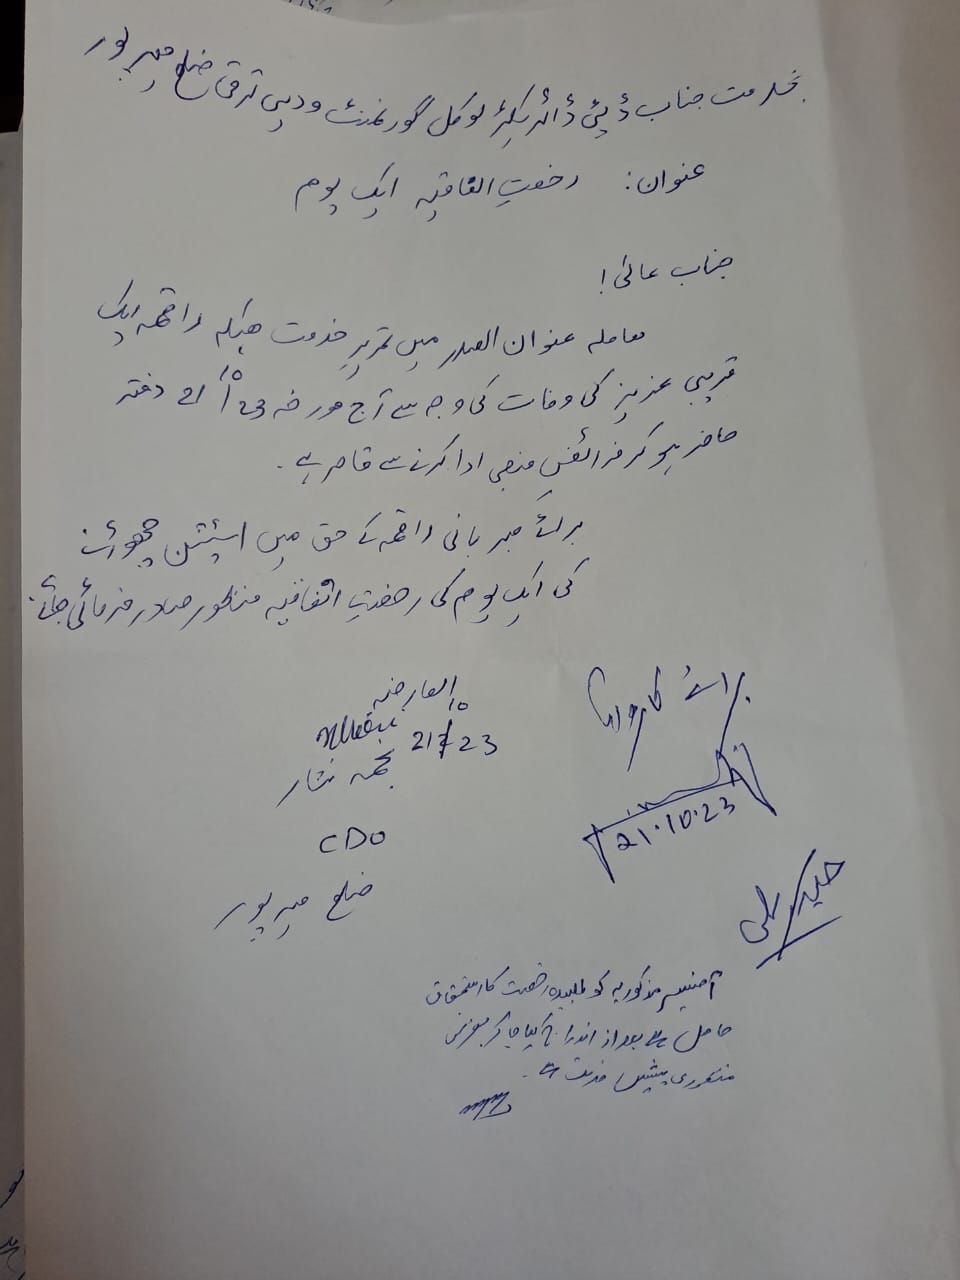 بخدمت جناب ڈپٹی ڈائریکٹر لوکل گورنمنٹ و دیہی ترقی ضلع میرپور
عنوان: رخصتِ اتفاقیہ ایک یوم
جناب عالی!
معاملہ عنوان الصدر میں تحریرِ خدمت ہیکہ راقمہ ایک
قریبی عزیز کی وفات کی وجہ سے آج مورخہ 21/10/23 دفتر
حاضر ہو کر فرائض منصبی ادا کرنے سے قاصر ہے۔
برائے مہربانی راقمہ کے حق میں اسٹیشن چھوڑنے
کی ایک یوم کی رخصتِ اتفاقیہ منظور صادر فرمائی جائے۔
العارضہ
21/10/23
نجمہ نثار
CDO
ضلع میرپور
برائے کاروائی
21.10.23
آفیسر مذکوریہ کو طلبیدہ رخصت کا استحقاق
حاصل ہے بعد از اندراج کیا جا کر بغرض
منظوری پیش خدمت ہے۔